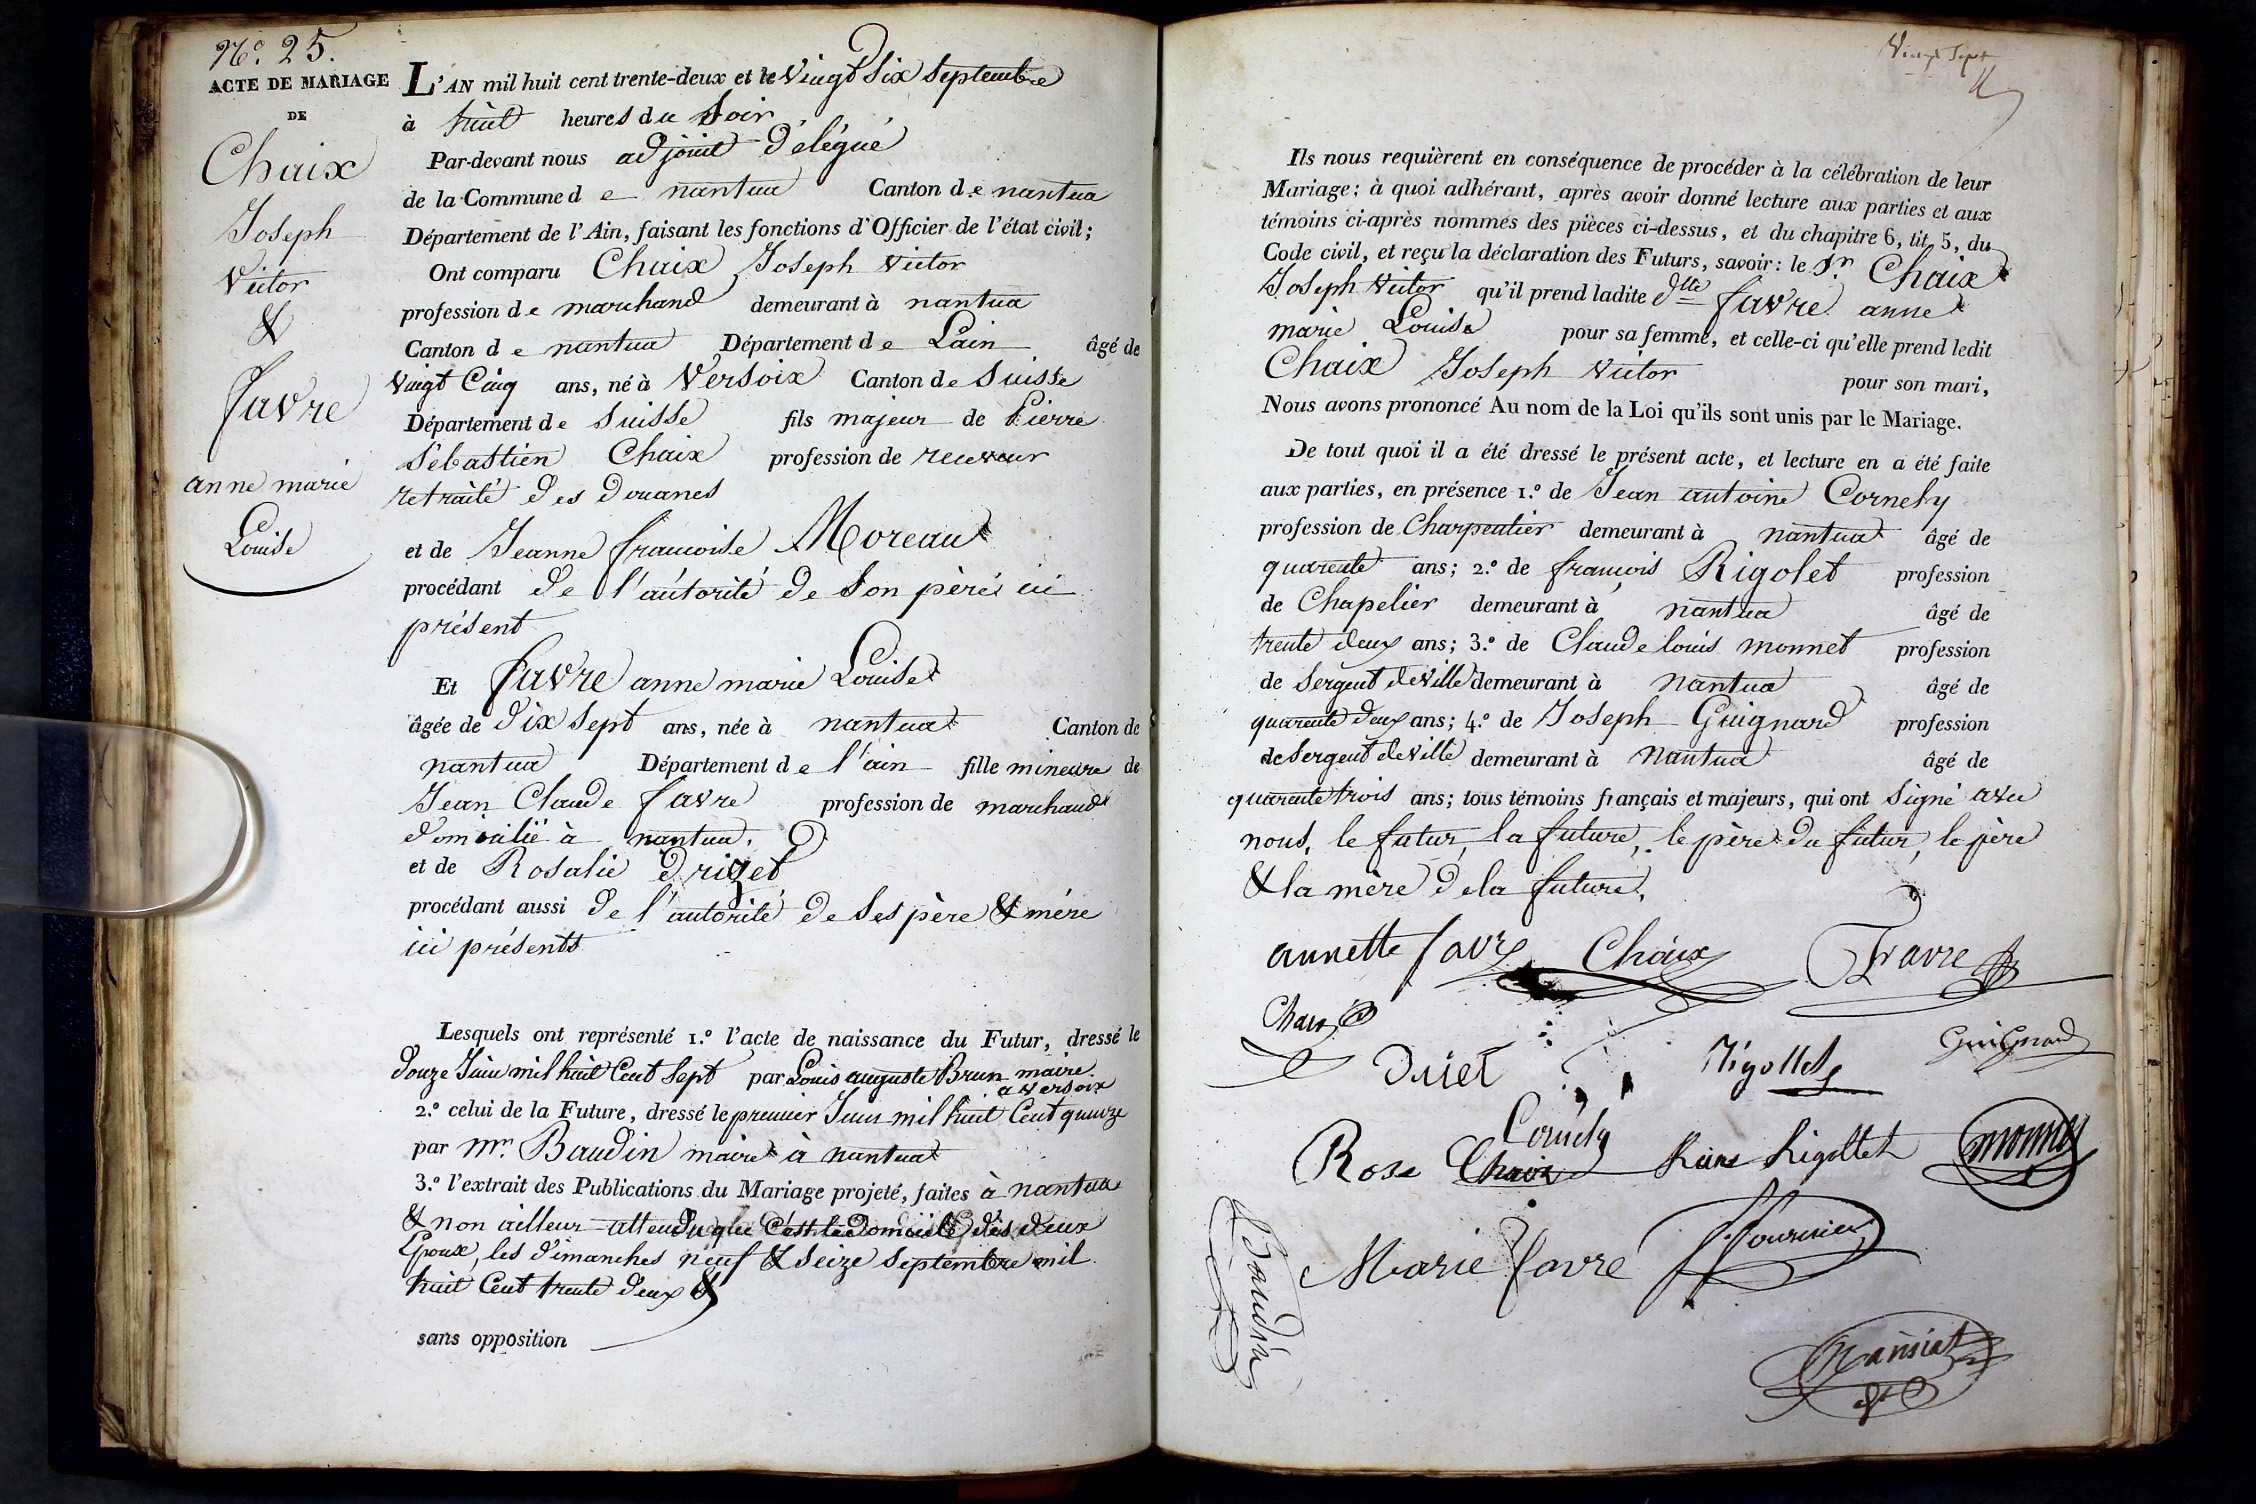 N.º 25.
ACTE DE MARIAGE
DE
Chaix
Joseph
Victor
&
favre
anne marie
Louise
L'AN mil huit cent trente-deux et le Vingt Six Septembre
à huit heures du Soir
Par-devant nous adjoint Délégué
de la Commune de nantua Canton de nantua
Département de l'Ain, faisant les fonctions d'Officier de l'état civil;
Ont comparu Chaix Joseph Victor
profession de marchand demeurant à nantua
Canton de nantua Département de Lain âgé de
Vingt Cinq ans, né à Versoix Canton de Suisse
Département de Suisse fils majeur de Pierre
Sébastien Chaix profession de receveur
retraité des Douanes
et de Jeanne francoise Moreau
procédant de l'autorité de Son père ici
présent
Et favre anne marie Louise
âgée de Dix Sept ans, née à nantua Canton de
nantua Département de l'ain fille mineure de
Jean Claude favre profession de marchand
Domicilié à nantua.
et de Rosalie Drizet
procédant aussi de l'autorité de Ses père & mére
ici présents
Lesquels ont représenté 1.º l'acte de naissance du Futur, dressé le
Douze Juin mil huit Cent Sept par Louis auguste Brun maire
a Versoix
2.º celui de la Future, dressé le premier Juin mil huit Cent quinze
par Mr. Baudin maire à nantua
3.º l'extrait des Publications du Mariage projeté, faites à nantua
& non ailleur attendu que C'est le Domicile des deux
Epoux, les dimanches neuf & Seize Septembre mil
huit Cent trente deux &
sans opposition
Vingt Sept
Ils nous requièrent en conséquence de procéder à la célébration de leur
Mariage; à quoi adhérant, après avoir donné lecture aux parties et aux
témoins ci-après nommés des pièces ci-dessus, et du chapitre 6, tit. 5, du
Code civil, et reçu la déclaration des Futurs, savoir: le Sr Chaix
Joseph Victor qu'il prend ladite dlle favre anne
marie Louise pour sa femme, et celle-ci qu'elle prend ledit
Chaix Joseph Victor pour son mari,
Nous avons prononcé Au nom de la Loi qu'ils sont unis par le Mariage.
De tout quoi il a été dressé le présent acte, et lecture en a été faite
aux parties, en présence 1.º de Jean antoine Cornely
profession de Charpentier demeurant à nantua âgé de
quarente ans; 2.º de françois Rigolet profession
de Chapelier demeurant à nantua âgé de
trente deux ans; 3.º de Claude louis monnet profession
de Sergent de Ville demeurant à nantua âgé de
quarente deux ans; 4.º de Joseph Guignard profession
de Sergent de Ville demeurant à nantua âgé de
quarente trois ans; tous témoins français et majeurs, qui ont Signé avec
nous, le futur, la future, le père du futur, le père
& la mère de la future.
annette favre Chaix Favre
Chaix
Rigollet Guignard
Cornely
Rose Chaix Rigollet monnet
Marie favre fournier
Baudin